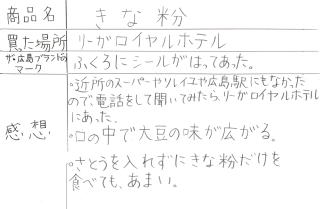 商品名 きな粉
買った場所 リーガロイヤルホテル
ザ・広島ブランドの
マーク ふくろにシールがはってあった。
感想
○近所のスーパーやソレイユや広島駅にもなかった
ので、電話をして聞いてみたら、リーガロイヤルホテル
にあった。
○口の中で大豆の味が広がる。
○さとうを入れずにきな粉だけを
食べても、あまい。